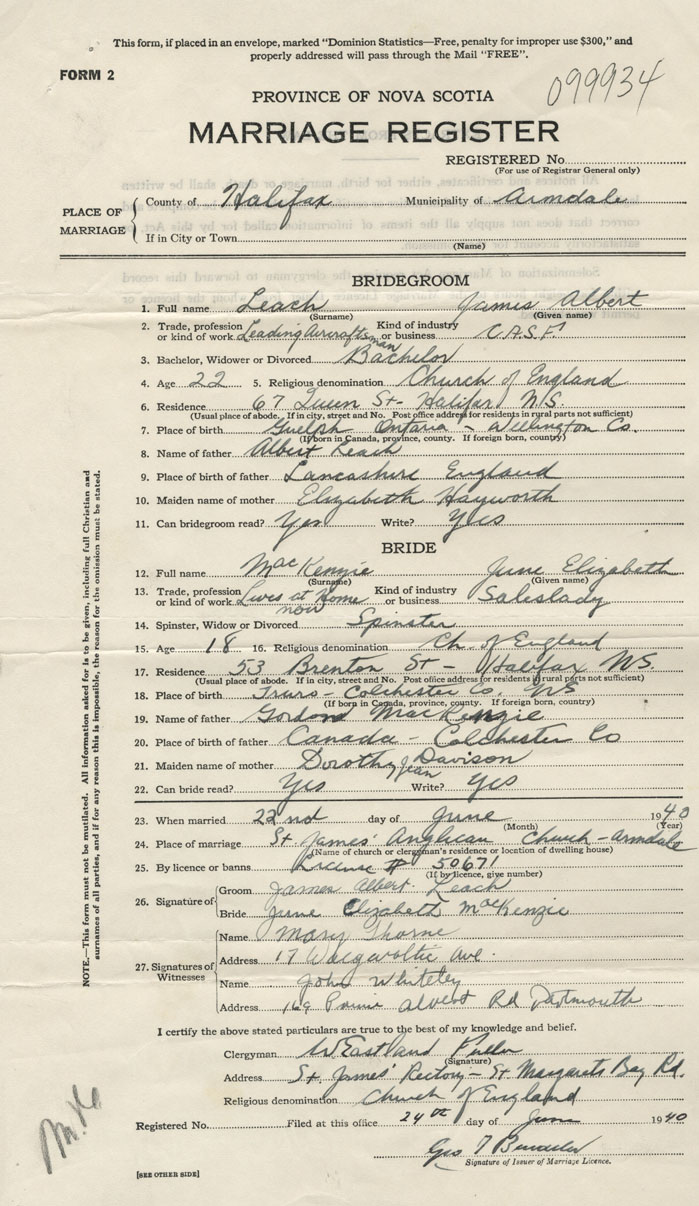 This form, if placed in an envelope, marked "Dominion Statistics—Free, penalty for improper use $300," and
properly addressed will pass through the Mail "FREE".
FORM 2
099934
PROVINCE OF NOVA SCOTIA
MARRIAGE REGISTER
REGISTERED No.
(For use of Registrar General only)
PLACE OF MARRIAGE
County of Halifax Municipality of Armdale
If in City or Town
(Name)
BRIDEGROOM
1. Full name Leach James Albert
(Surname) (Given name)
2. Trade, profession or kind of work Leading Aircraftsman Kind of industry or business C.A.S.F.
3. Bachelor, Widower or Divorced Bachelor
4. Age 22 5. Religious denomination Church of England
6. Residence 67 Queen St- Halifax N.S.
(Usual place of abode. If in city, street and No. Post office address for residents in rural parts not sufficient)
7. Place of birth Guelph Ontario - Wellington Co.
(If born in Canada, province, county. If foreign born, country)
8. Name of father Albert Leach
9. Place of birth of father Lancashire England
10. Maiden name of mother Elizabeth Hayworth
11. Can bridegroom read? Yes Write? Yes
BRIDE
12. Full name MacKenzie June Elizabeth
(Surname) (Given name)
13. Trade, profession or kind of work Lives at Home now Kind of industry or business Saleslady
14. Spinster, Widow or Divorced Spinster
15. Age 18 16. Religious denomination Ch. of England
17. Residence 53 Brenton St- Halifax NS.
(Usual place of abode. If in city, street and No. Post office address for residents in rural parts not sufficient)
18. Place of birth Truro - Colchester Co. NS
(If born in Canada, province, county. If foreign born, country)
19. Name of father Gordon MacKenzie
20. Place of birth of father Canada - Colchester Co
21. Maiden name of mother Dorothy Jean Davison
22. Can bride read? Yes Write? Yes
23. When married 22nd day of June 1940
(Month) (Year)
24. Place of marriage St James' Anglican Church - Armdale
(Name of church or clergyman's residence or location of dwelling house)
25. By licence or banns License # 50671
(If by licence, give number)
26. Signature of
Groom James Albert Leach
Bride June Elizabeth MacKenzie
27. Signatures of Witnesses
Name Mary Thorne
Address 17 Ave.
Name John Whiteley
Address 169 Prince Albert Rd Dartmouth
I certify the above stated particulars are true to the best of my knowledge and belief.
Clergyman W Eastland Fuller
(Signature)
Address St. James' Rectory - St Margarets Bay Rd.
Religious denomination Church of England
Registered No. Filed at this office 24th day of June 1940
Geo T
Signature of Issuer of Marriage Licence.
[SEE OTHER SIDE]
NOTE.—This form must not be mutilated. All information asked for is to be given, including full Christian and
surnames of all parties, and if for any reason this is impossible, the reason for the omission must be stated.